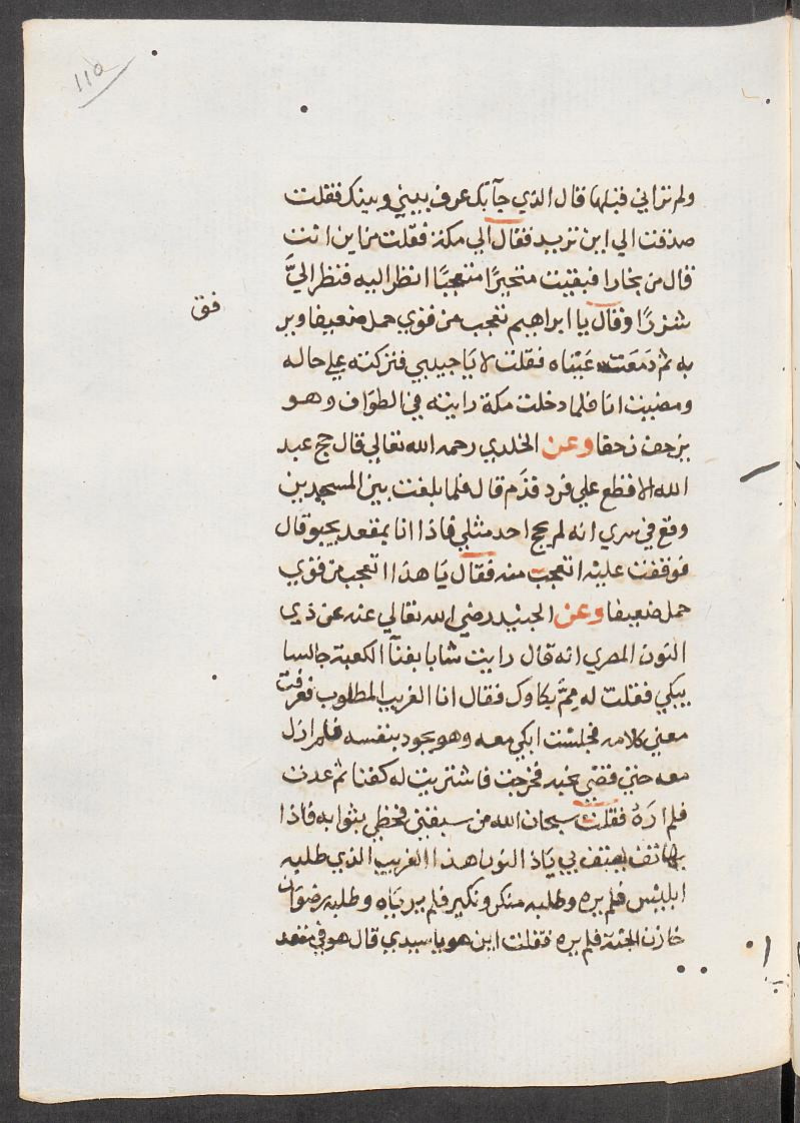 ١١٥
ولم تراني قبلها قال الذي جآ بك عرف بيني وبينك فقلت
صدقت الي اين تريد فقال الي مكة فقلت من اين انت
قال من بخارا فبقيت متحيرًا متعجبًا انظر اليه فنظر اليَّ
شزرًا وقال يا ابراهيم تعجب من قوي حمل ضعيفا وبر
فق
به ثم دمعت عيناه فقلت لا يا حبيبي فتركته علي حاله
ومضيت انا فلما دخلت مكة رايته في الطواف وهو
يزحف زحفا وعن الخلدي رحمه الله تعالي قال حج عبد
الله الاقطع علي فرد قدم قال فلما بلغت بين المسجدين
وقع في سري انه لم يحج احد مثلي فاذا انا بمقعد يحبو قال
فوقفت عليه اتعجب منه فقال يا هذا اتعجب من قوي
حمل ضعيفا وعن الجنيد رضي الله تعالي عنه عن ذي
النون المصري انه قال رايت شابا بفنآ الكعبة جالسا
يبكي فقلت له مم بكاوك فقال انا الغريب المطلوب فعرفت
معني كلامه فجلست ابكي معه وهو يجود بنفسه فلم ازل
معه حتي قضي نحبه فخرجت فاشتريت له كفنا ثم عدت
فلم اره فقلت سبحان الله من سبقني فحظي بثوابه فاذا
بهاتف يهتف بي يا ذا النون هذا الغريب الذي طلبه
ابليس فلم يره وطلبه منكر ونكير فلم يرياه وطلبه رضوان
خازن الجنة فلم يره فقلت اين هو يا سيدي قال هو في مقعد